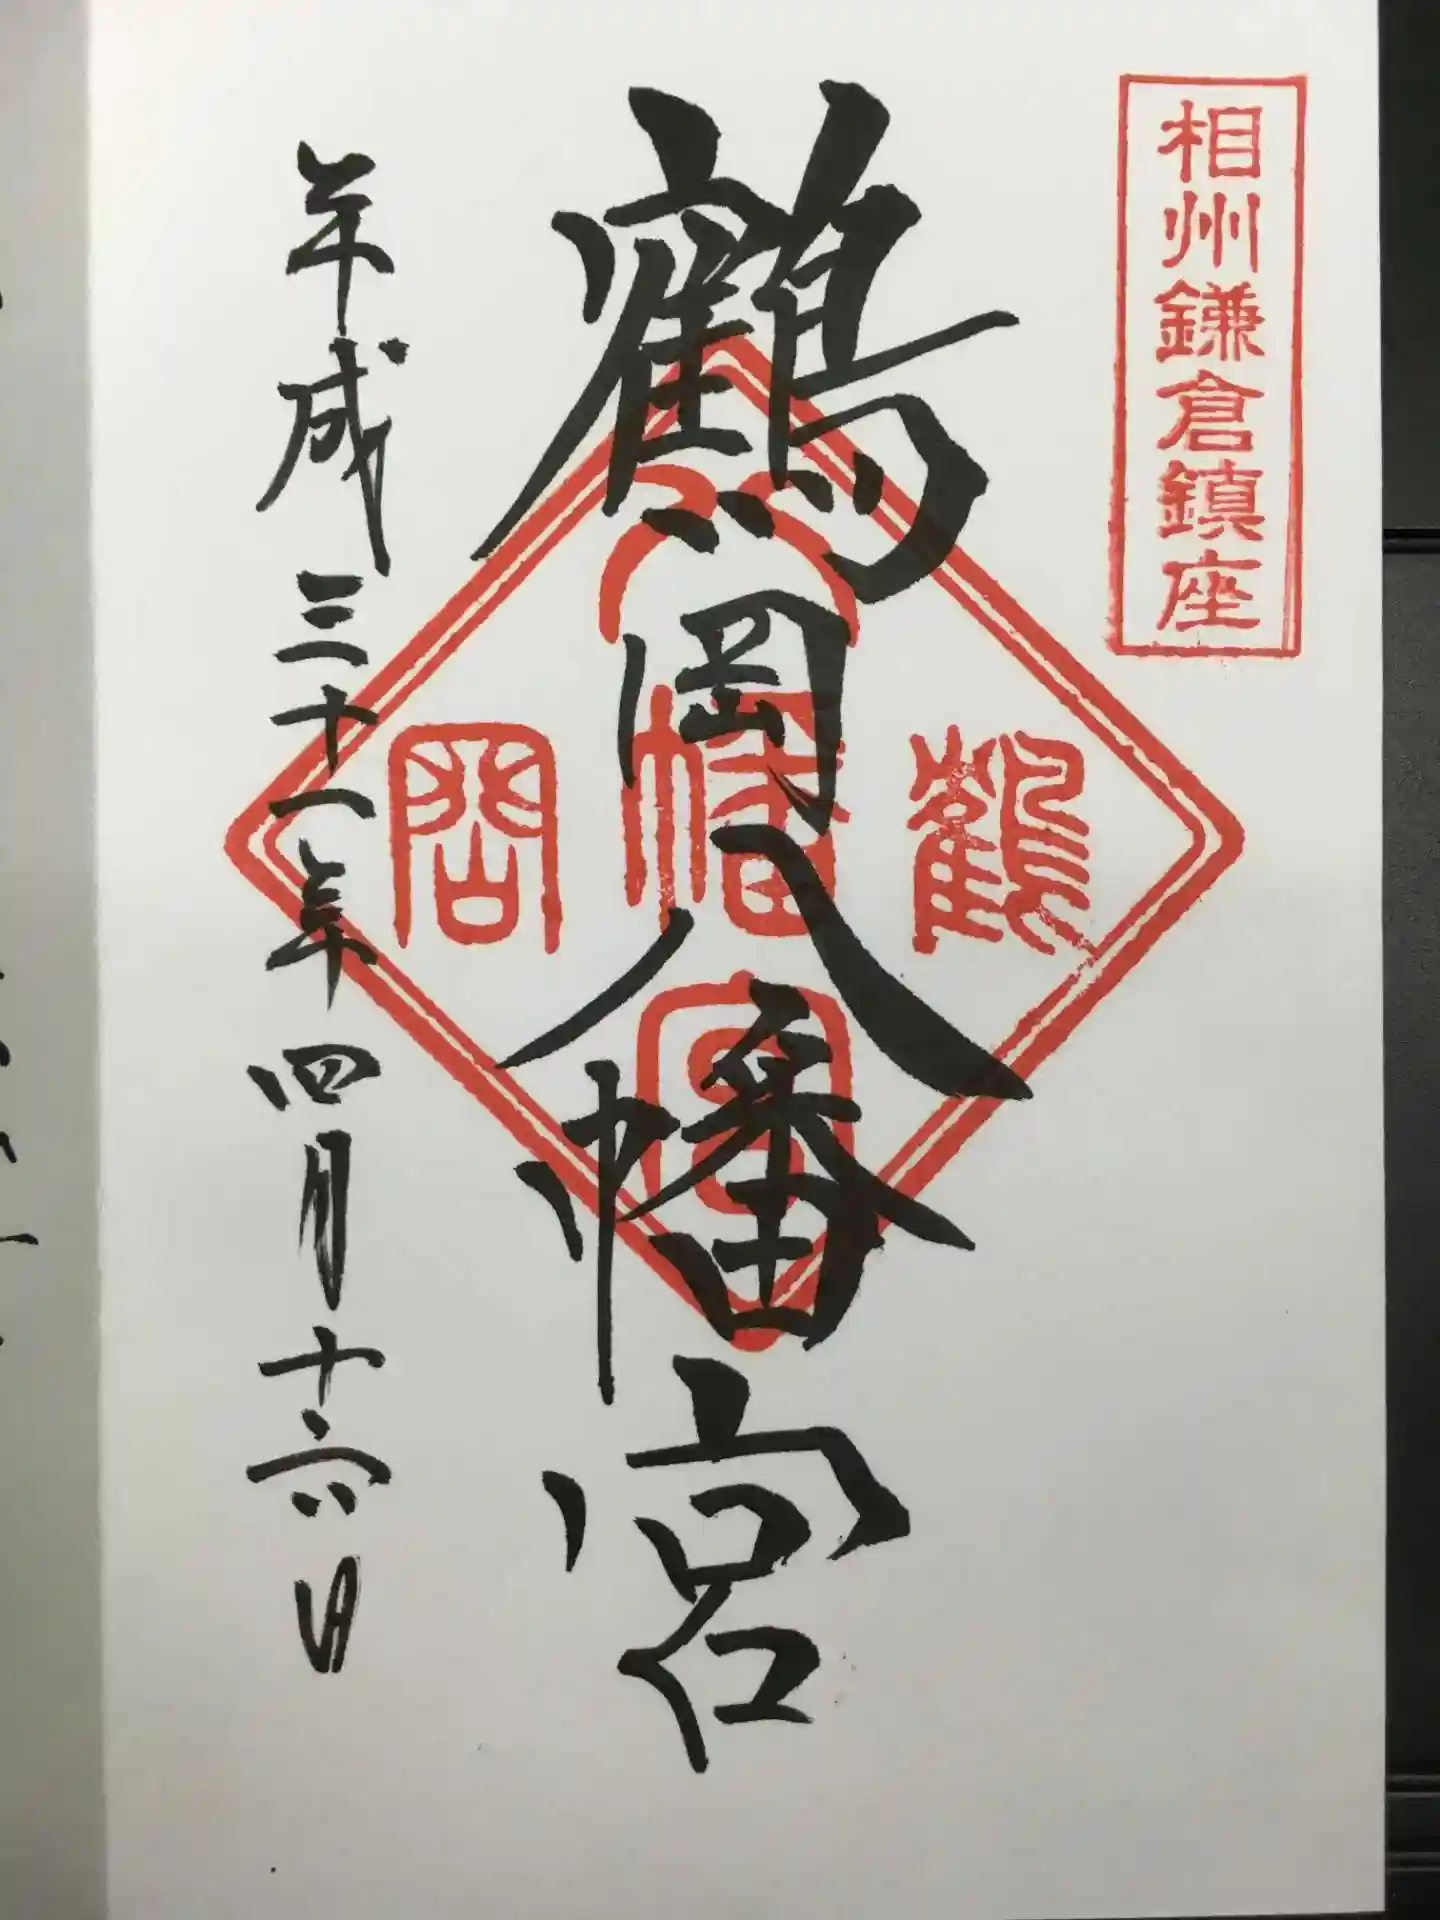 相州鎌倉鎮座
鶴岡八幡宮
鶴
八
幡
宮
岡
平成三十一年四月十六日